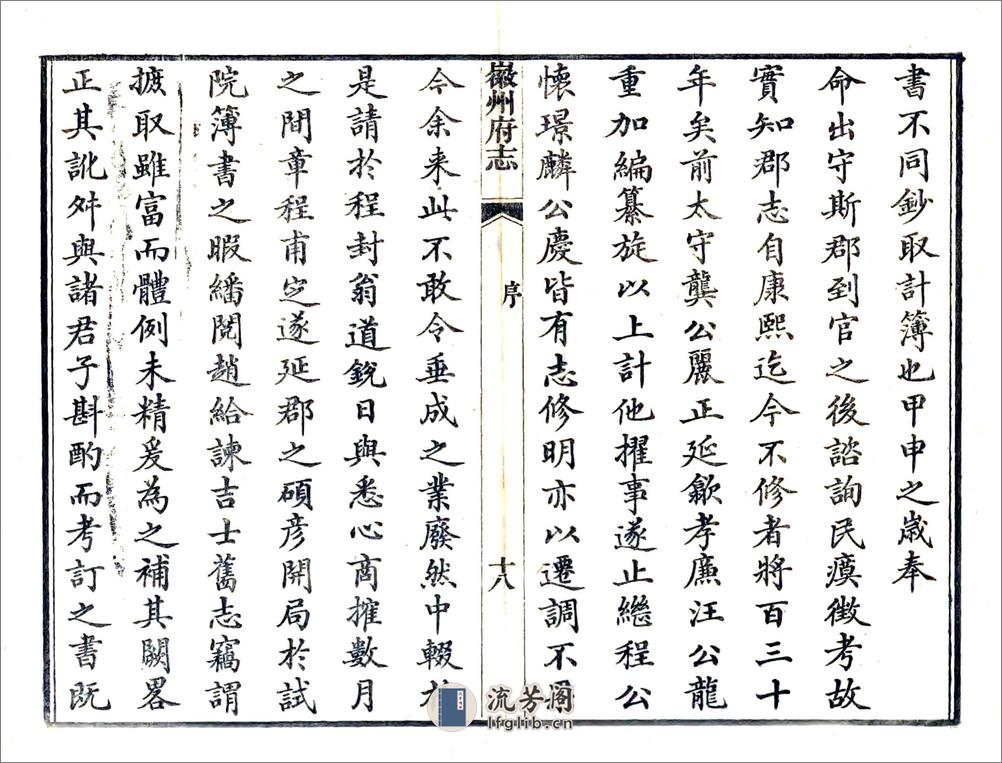 書不同鈔取計簿也甲申之嵗奉
命出守斯郡到官之後諮詢民瘼徵考故
實知郡志自康熙迄今不修者將百三十
年矣前太守龔公麗正延歙孝廉汪公龍
重加編纂旋以上計他擢事遂止繼程公
懷璟麟公慶皆有志修明亦以遷調不
徽州府志
序
十八
今余来此不敢令垂成之業廢然中輟於
是請於程封翁道銳日與悉心商搉數月
之間章程甫定遂延郡之碩彦開局於試
院簿書之暇繙閱趙給諫吉士舊志竊謂
摭取雖富而體例未精爰為之補其闕畧
正其訛舛與諸君子斟酌而考訂之書既
流芳阁
lfglib.cn